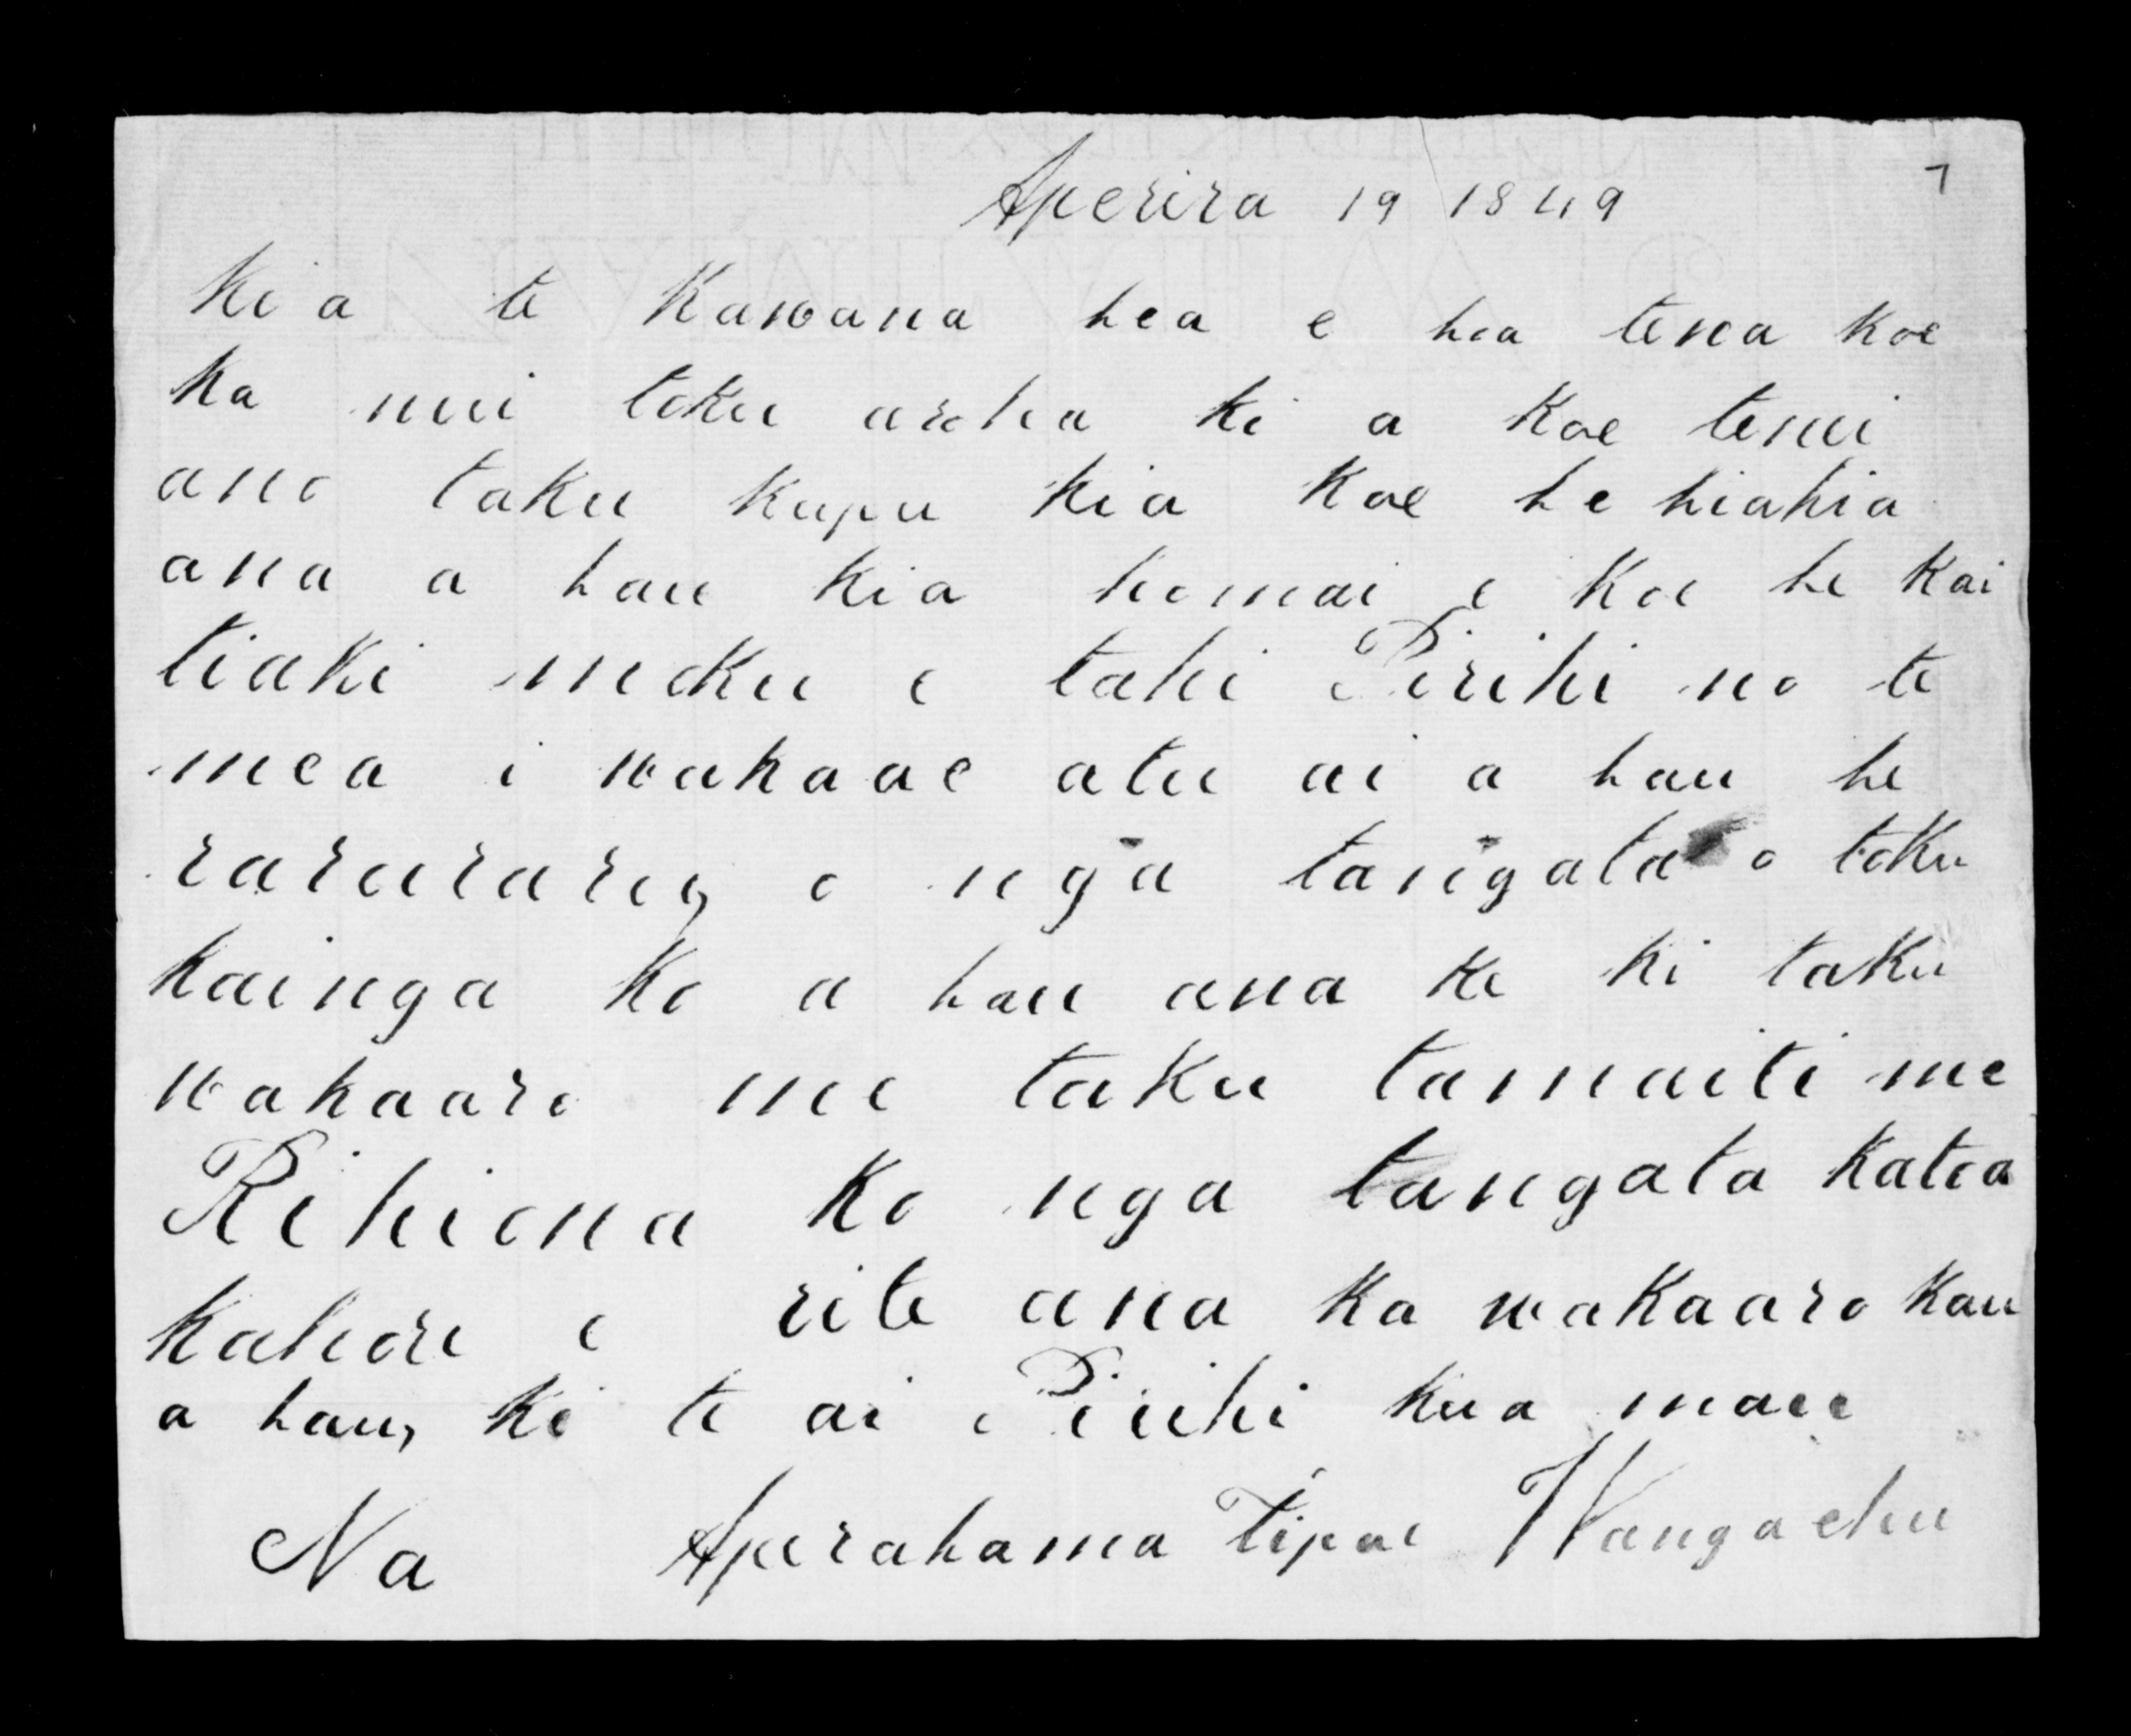 Aperira 19 1849
7
Ki a te Kawana hoa e hoa tena koe
Ka nui toku aroha ki a koe tenei
ano taku kupu kia koe he hiahia
ana a hau kia homai e koe he kai
tiaki moku e tahi Pirihi no te
mea i wakaae atu ai a hau he
raruraru, o nga tangata o toku
kainga ko a hau ana ke ki taku
wakaaro me taku tamaiti me
Rihiona ko nga tangata katoa
kahore e rite ana ka wakaaro kau
a hau, ki te ai e Pirihi kua mau
Na Aperahama Tipae Wangaehu